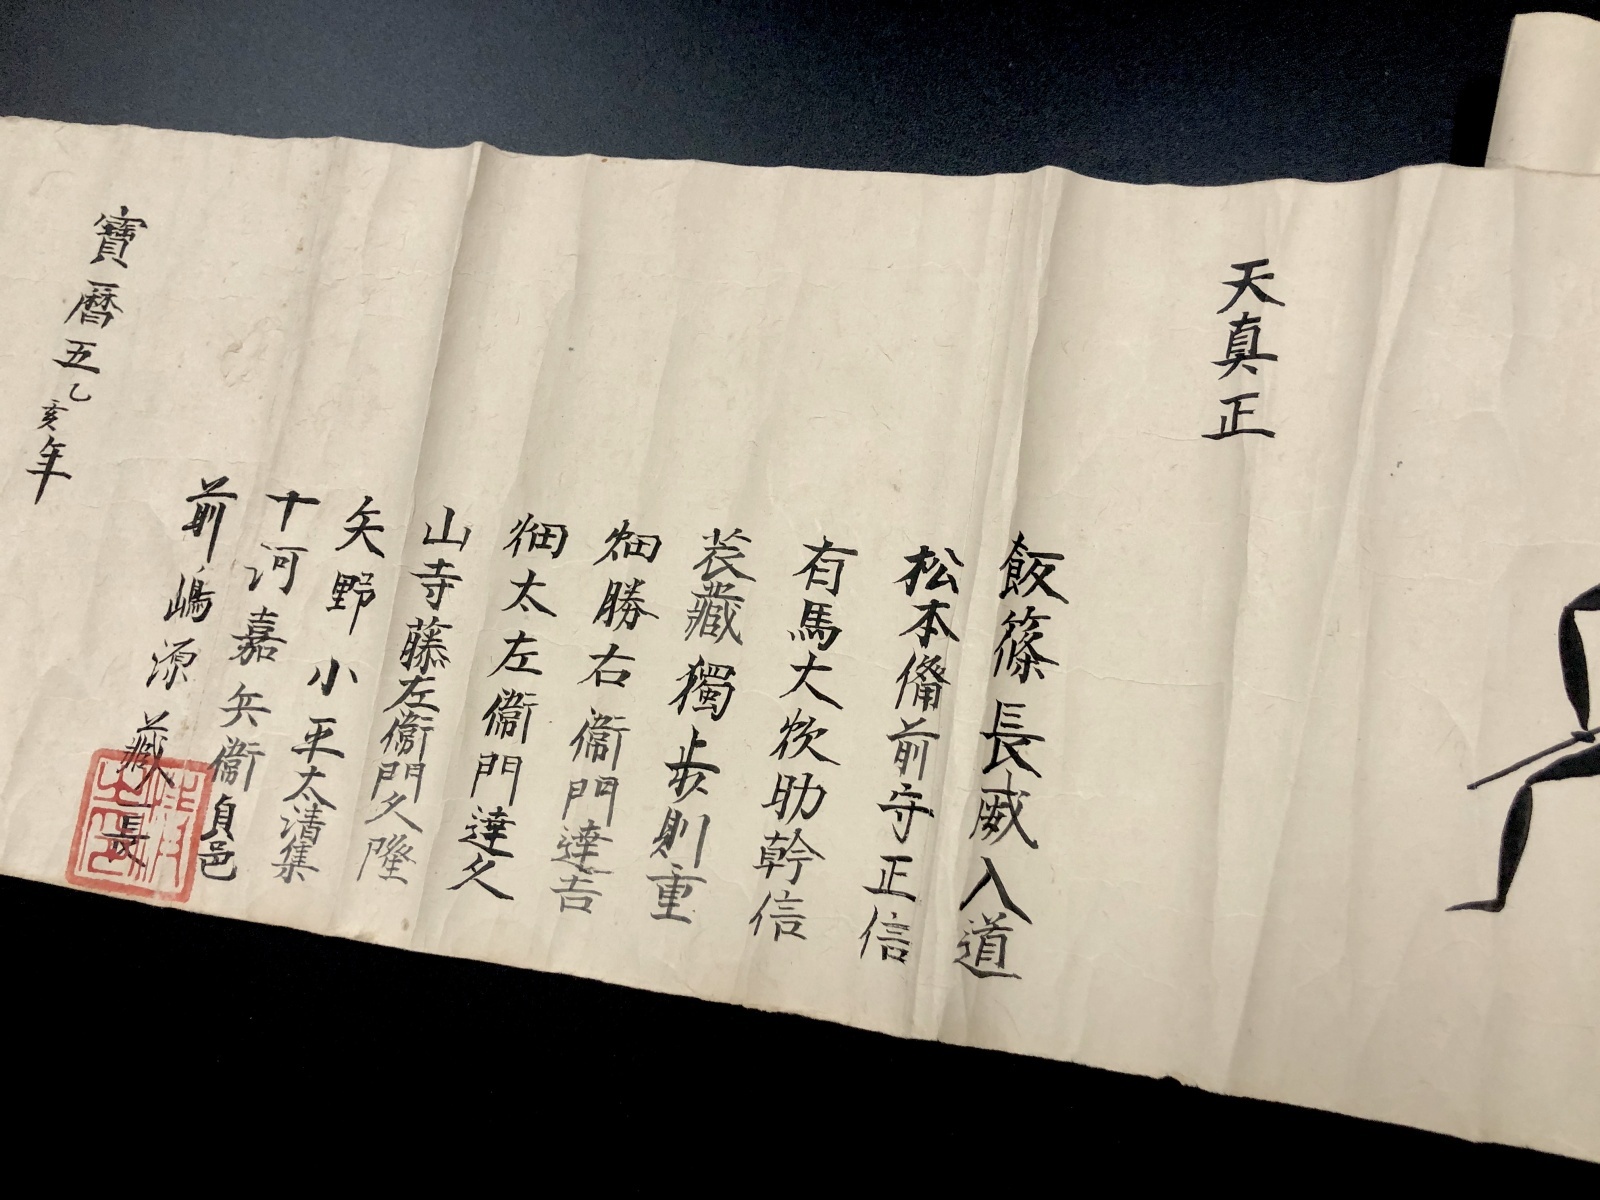 天真正
飯篠長威入道
松本備前守正信
有馬大炊助幹信
衣藏獨歩則重
畑勝右衛門達吉
畑太左衛門達久
山寺藤左衛門久隆
矢野小平太清集
十河嘉兵衛貞邑
前嶋源藏長
寶暦五乙亥年